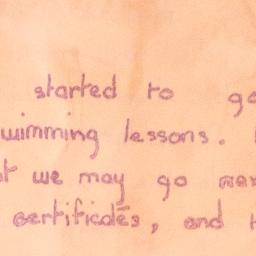 started to go
wimming lessons.
t we may go
certificates, and